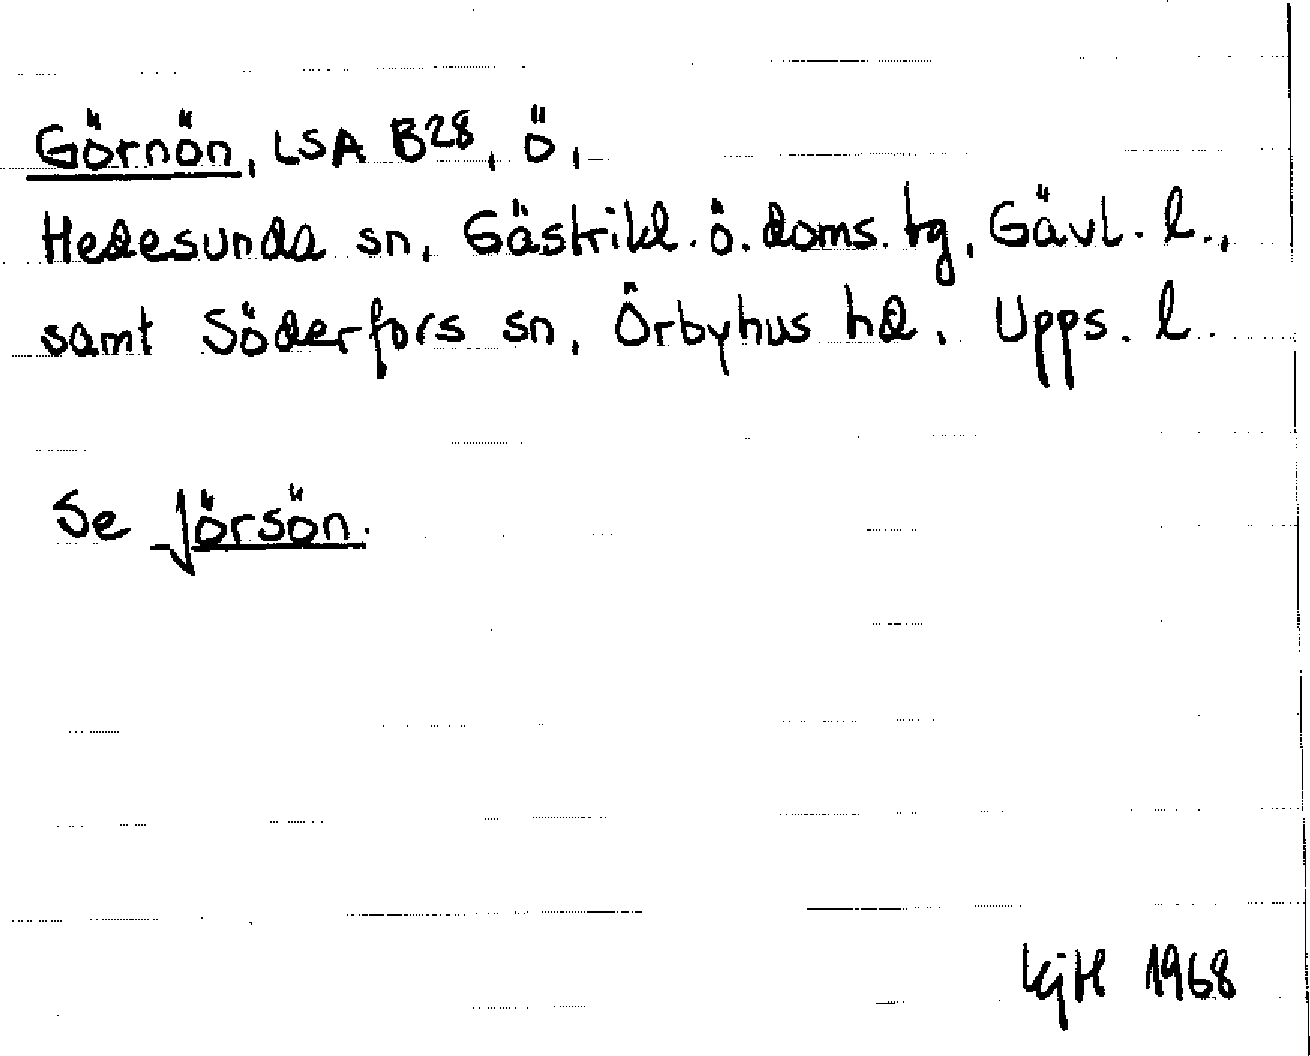 Görnön, LSA B28, ö,
Hedesunda sn, Gästrikl. ö. doms. tg, Gävl. l.,
samt Söderfors sn, Örbyhus hd, Upps. l.
Se Jörsön.
KjH 1968